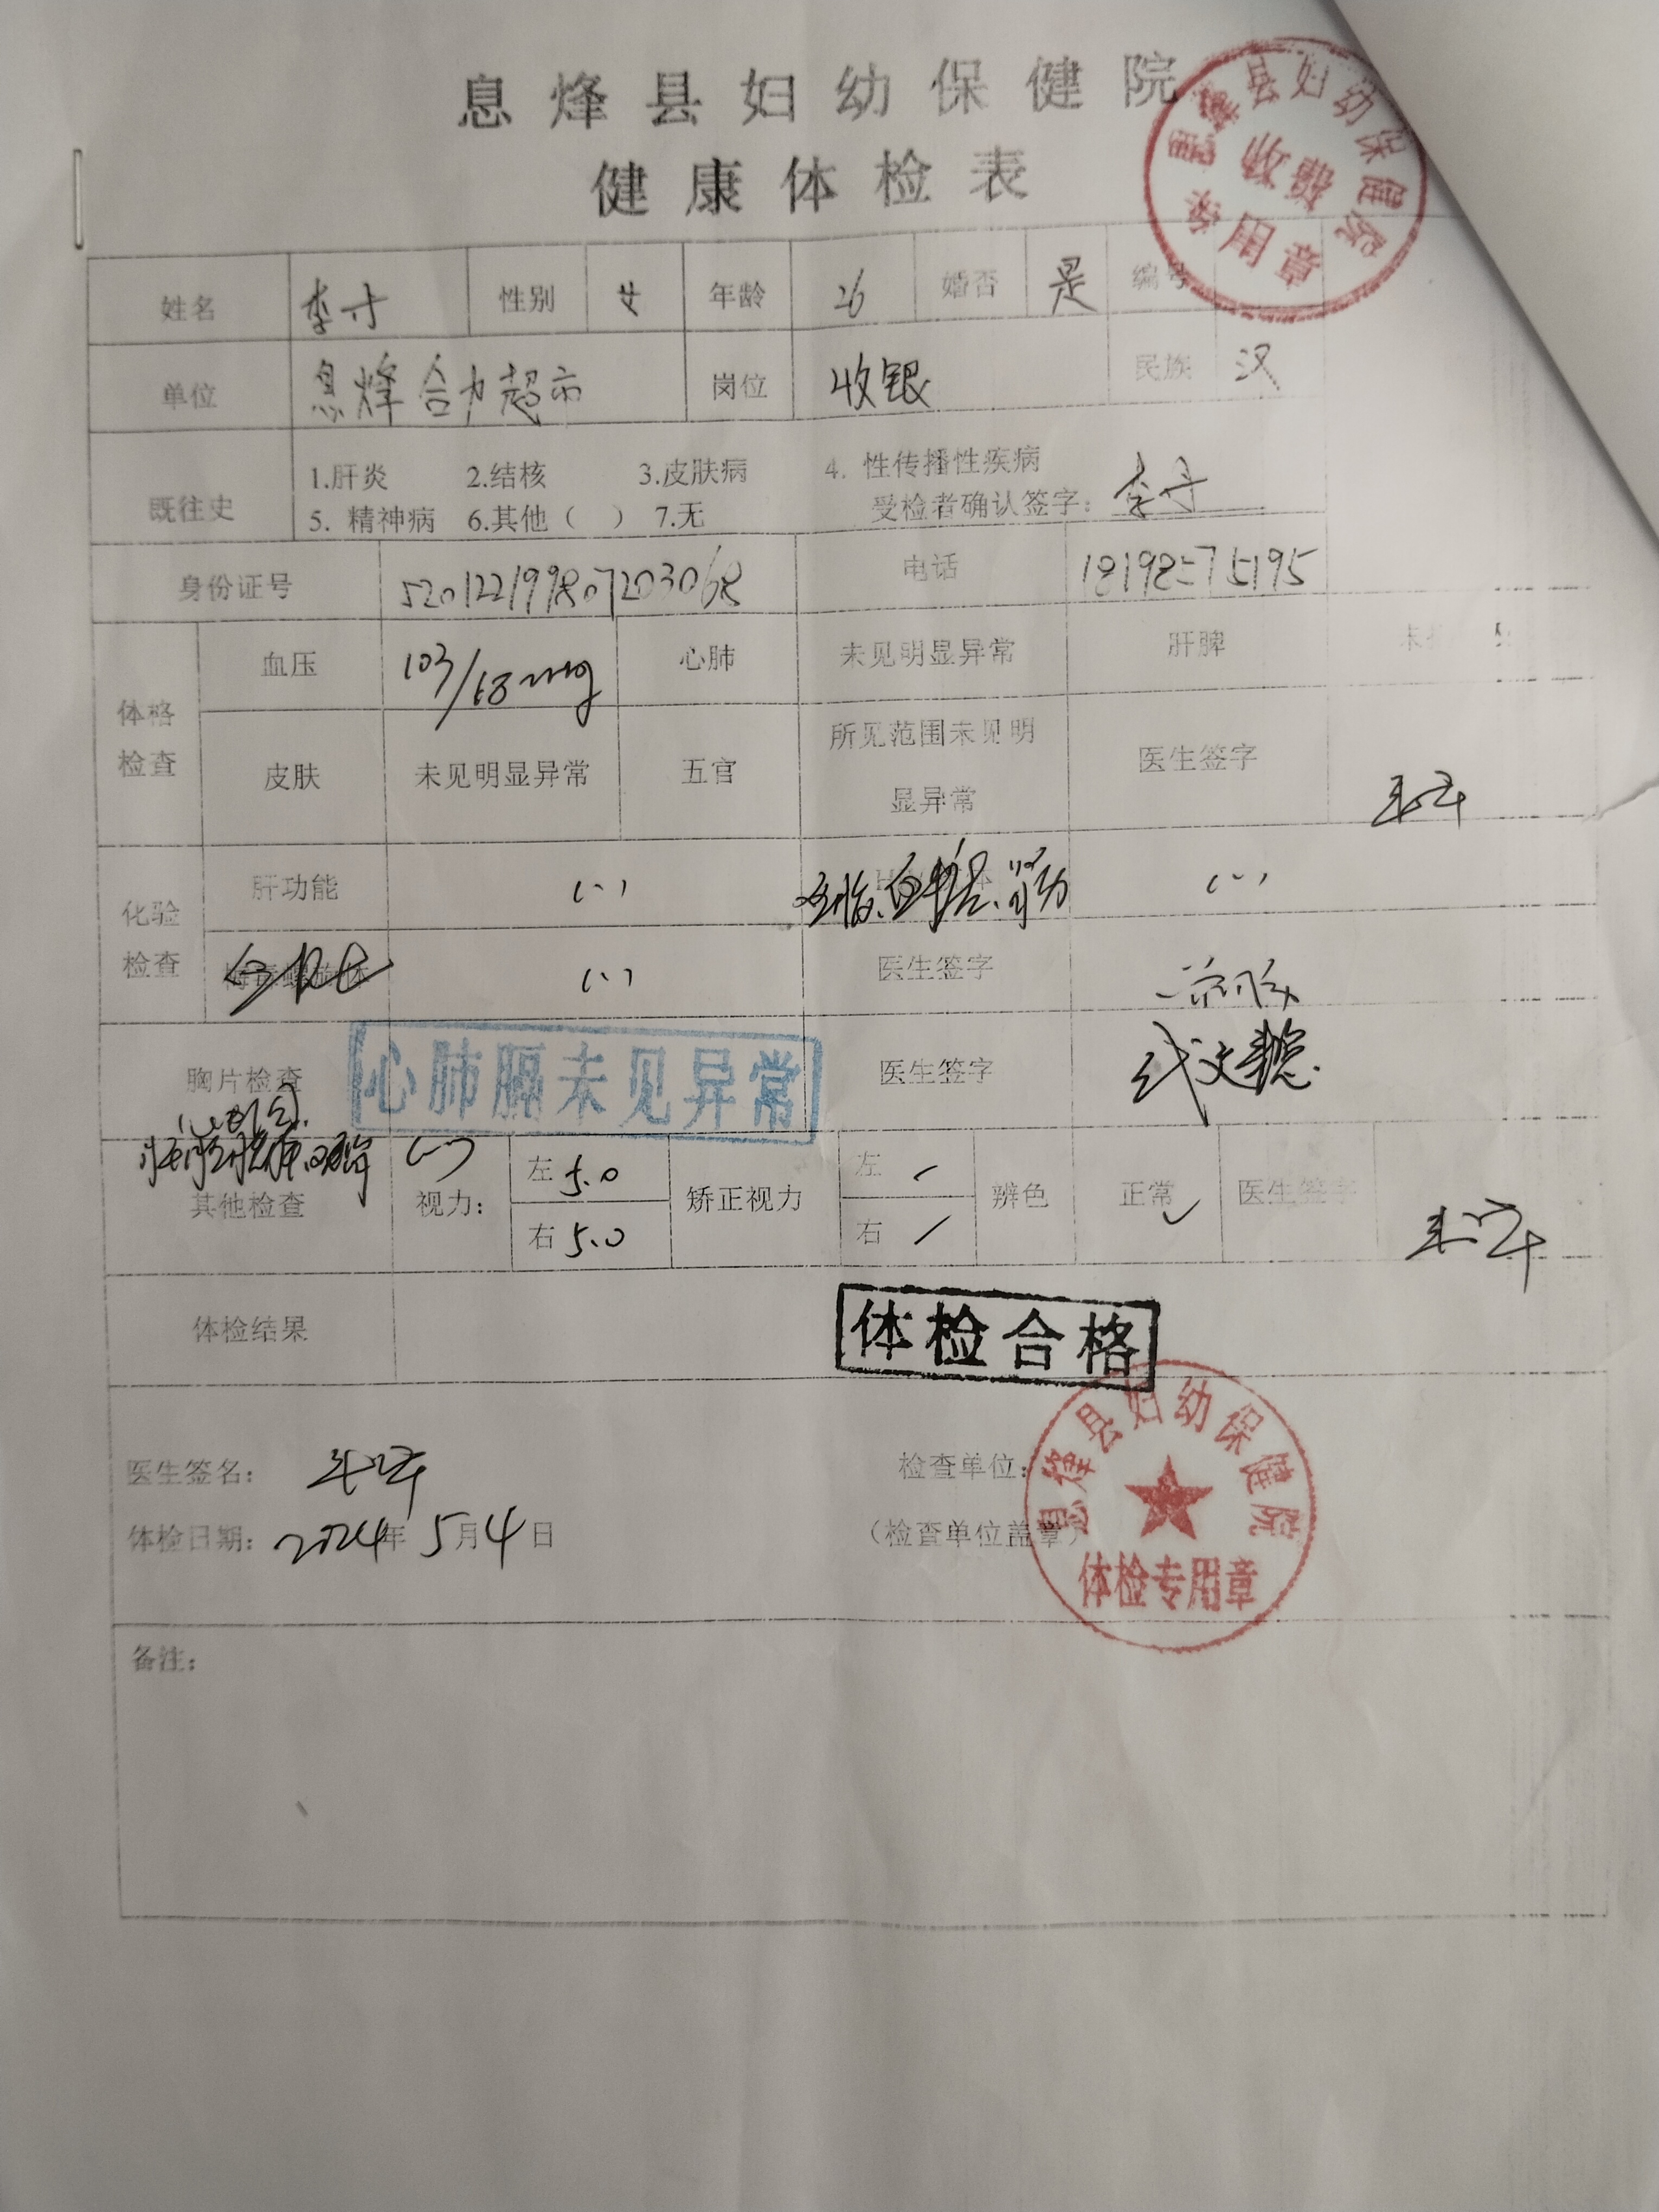 息烽县妇幼保健院
健康体检表
息烽县妇幼保健院
收费专用章
姓名 李丹 性别 女 年龄 26 婚否 是 编号
单位 息烽合力超市 岗位 收银 民族 汉
既往史
1.肝炎 2.结核 3.皮肤病 4. 性传播性疾病
5. 精神病 6.其他（ ） 7.无 受检者确认签字：李丹
身份证号 520122199807203068 电话
体格检查
血压 103/68 心肺 未见明显异常 肝脾
皮肤 未见明显异常 五官 所见范围未见明显异常 医生签字
化验检查
肝功能 (-) 血脂、血糖、肾功 (-)
(-) 医生签字
胸片检查 心肺膈未见异常 医生签字
心电图
(-)
其他检查 视力： 左 5.0 矫正视力 左 / 辨色 正常 ✓ 医生签字
右 5.0 右 /
体检结果 体检合格
医生签名： 检查单位：
体检日期：2024年5月4日 （检查单位盖章）
息烽县妇幼保健院
体检专用章
备注：